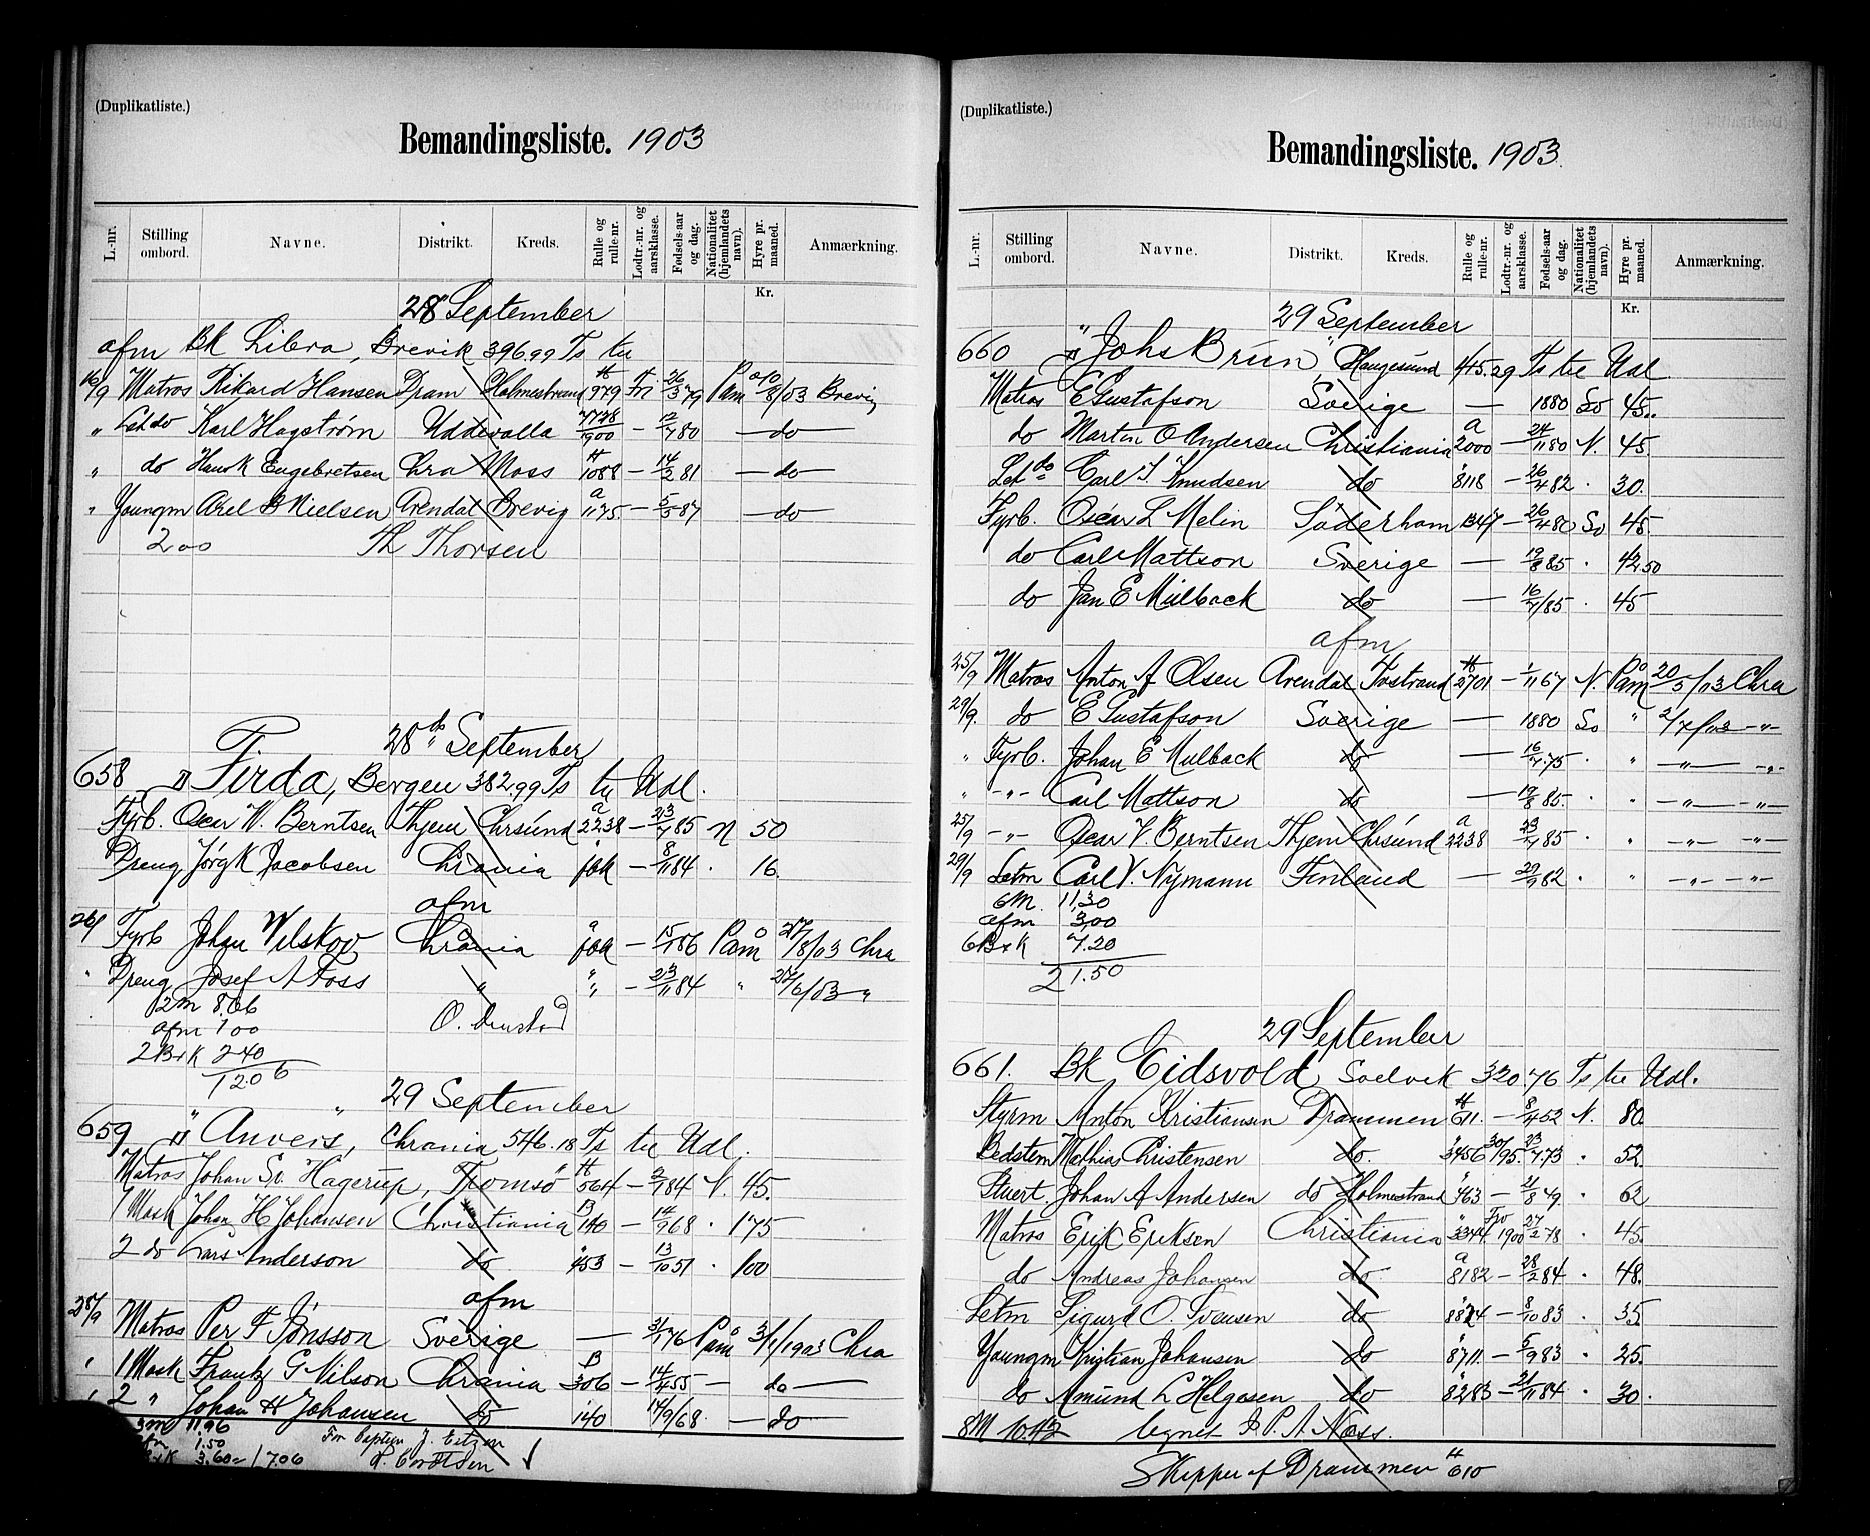 (Duplikatliste.)
Bemandingsliste. 1903
L.-nr. Stilling ombord. Navne. Distrikt. Kreds. Rulle og rulle-nr. Lodtr.-nr. og aarsklasse. Fødsels-aar og dag. Nationalitet (hjemlandets navn). Hyre pr. maaned. Anmærkning.
Kr.
28 September
afm Bk Libra, Brevik 396.99 Ts til
16/9 Matros Rikard Hansen Dram Holmestrand 979 26/3 79 Påm 8/03 Brevig
" Let do Karl Hagstrøm Uddevalla 7728/1900 – 12/7 80 — do —
" do Hans K Engebretsen Chra Moss 1088 – 14/2 81 — do —
" Youngm Axel B Nielsen Arendal Brevig a 1175 – 5/3 87 — do —
2 00 Th Thorsen
28 September
658 D Firda, Bergen 382.99 Ts til Udl.
Fyrb. Oscar W. Berntsen Thjem Chrsund a 2238 – 23/7 85 N 50
Dreng Jørg K Jacobsen Chrania jak – 8/11 84 . 16.
afm
26/ Fyrb Johan Wilskov Chrania jak – 15/1 86 Påm 27/8/03 Chra
" Dreng Josef A Foss " " – 23/11 84 " 22/6/03 "
2m 8.06
afm 1 00
2 B+K 2 40
12.06
29 September
659 D " Anvers, " Chrania 546.18 Ts til Udl.
Matros Johan Sv. Hagerup, Tromsø 564 – 2/7 84 N. 45.
1 Mask Johan H Johansen Christiania B 140 – 14/9 68 . 175
2 do Lars Anderson do " 453 – 13/10 51 . 100
afm
28/9 Matros Per F Jönsson Sverige — 3/1 76 Påm 3/1/1903 Chra
" 1 Mask Frantz G Nilson Chrania B 306 – 14/4 55 — do —
" 2 " Johan H Johansen do " 140 14/9/68. — do —
3m 11.96
1.50
3.60 17.06
For Captein J. Eitzen
(Duplikatliste.)
Bemandingsliste. 1903.
L.-nr. Stilling ombord. Navne. Distrikt. Kreds. Rulle og rulle-nr. Lodtr.-nr. og aarsklasse. Fødsels-aar og dag. Nationalitet (hjemlandets navn). Hyre pr. maaned. Anmærkning.
Kr.
29 September
660 D "Johs Brun", Haugesund 745.29 Ts til Udl
Matros E Gustafson Sverige — 1880 Sv 45.
do Martin O Andersen Christiania a 2000 – 24/11 80 N. 45.
Let do Carl J. Knudsen do " 8118 – 26/4 82 . 30.
Fyrb. Oscar L Melin Söderham 1347 – 26/4 80 Sv 45.
do Carl Mattson Sverige — 19/8 85 . 42.50
do Jan E Mulback do — 16/7/85 . 45
afm
25/9 Matros Anton A Olsen Arendal Tvstrand 2701 – 1/11 67 N. Påm 20/5/03 Chra
29/9. do E Gustafson Sverige — 1880 Sv " 2/7/03 – " –
" Fyrb. Johan E Mulback do — 16/7 75 . " – " – – " –
" – " – Carl Mattson do – 19/8 85 . " – " – – " –
25/9 – " – Oscar V. Berntsen Thjem Chrsund a 2238 23/7 85 . " – " – – " –
29/9 Letm Carl V. Nymann Finland — 29/9 82 . " – " – – " –
6M. 11.30
afm 3.00
6 B+K 7.20
21.50
29 September
661. Bk Eidsvold, Svelvik 320.76 Ts til Udl.
Styrm Anton Kristiansen Drammen 611. – 8/4 52 N. 80.
Bedstem Mathias Christensen do. " 3456 30/95. 23/7 73 . 52.
Stuert. Johan A Andersen do Holmestrand " 763 – 21/8 49 . 62
Matros Erik Eriksen Christiania " 3344 1900 27/2 78 . 45.
do Andreas Johansen do a 8182 – 28/2 84 . 48.
Letm Sigurd O. Svensen do " 8824 – 8/10 83 . 35
Youngm Kristian Johansen do " 8711. – 5/9 83 . 25.
do Amund L Helgesen do " 8283 – 21/11 84 . 30.
8M 10.42 tegnet P. A. Næss.
Skipper af Drammen 610